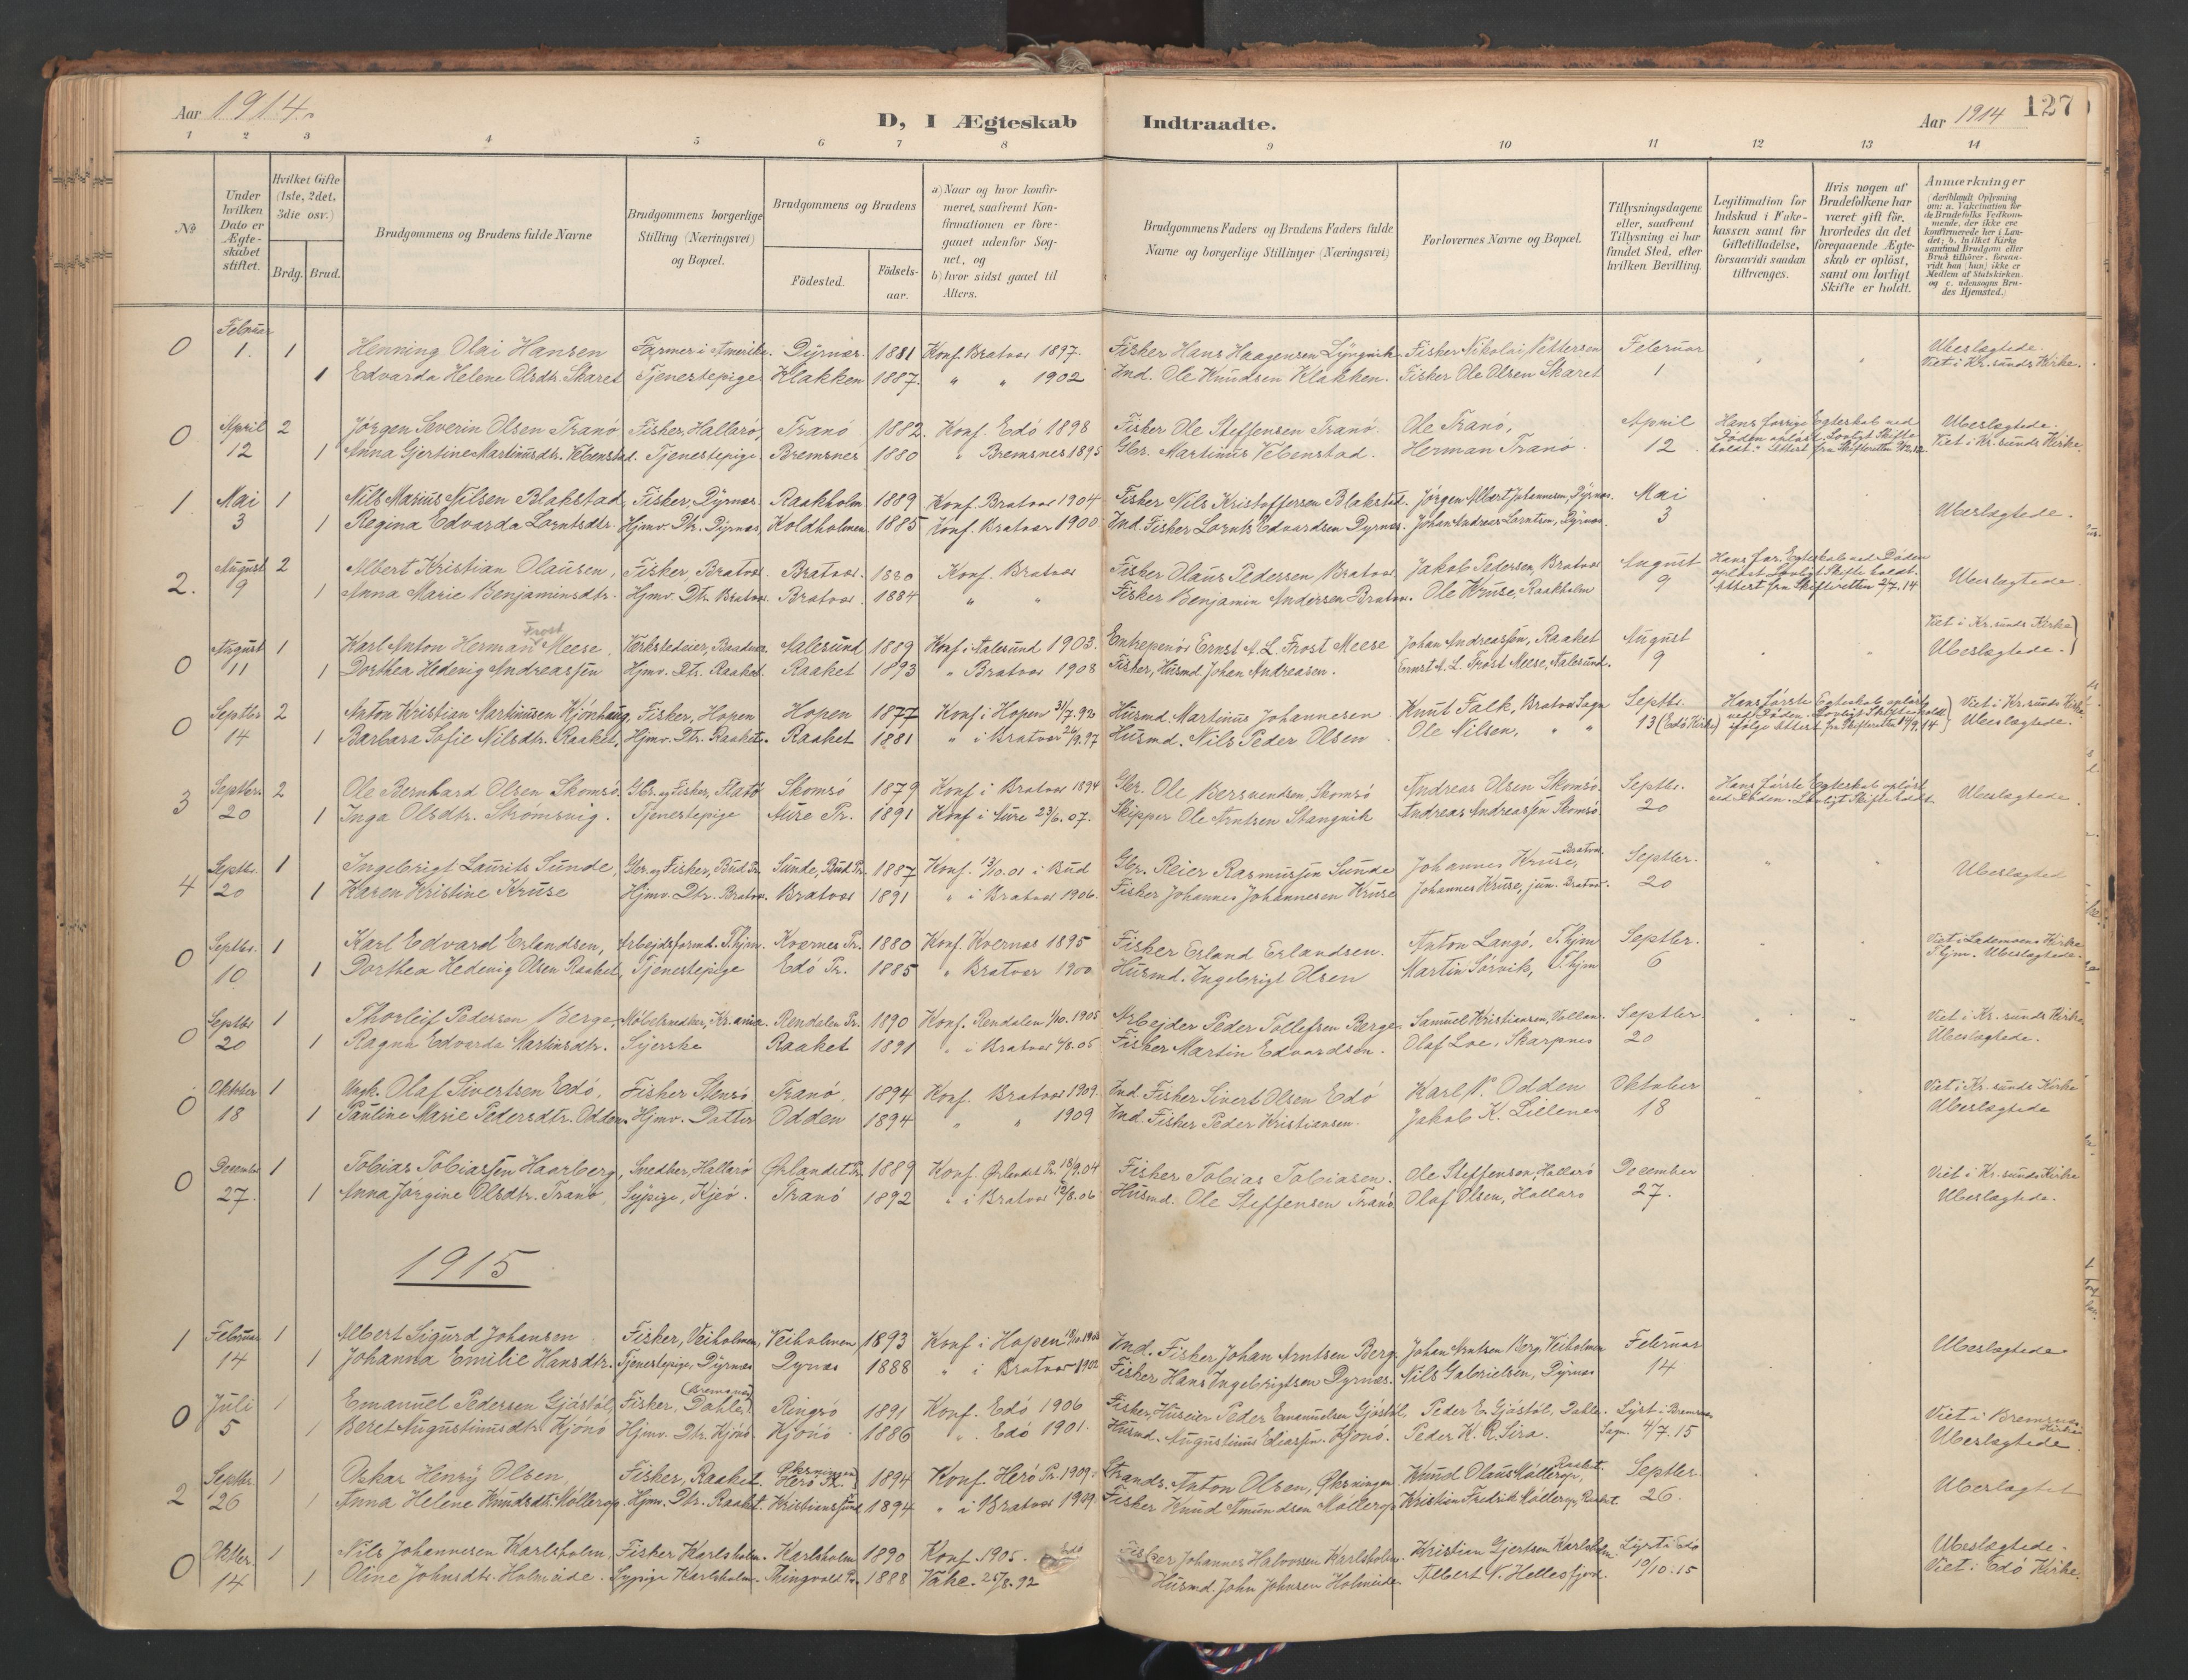 Aar 1914.
D, I Ægteskab Indtraadte.
Aar 1914 127
1 2 3 4 5 6 7 8 9 10 11 12 13 14
No
Under hvilken Dato er Ægteskabet stiftet.
Hvilket Gifte (1ste, 2det, 3die osv.)
Brdg. Brud.
Brudgommens og Brudens fulde Navne
Brudgommens borgerlige Stilling (Næringsvei) og Bopæl.
Brudgommens og Brudens
Födested.
Födselsaar.
a) Naar og hvor konfirmeret, saafremt Konfirmationen er foregaaet udenfor Sognet, og
b) hvor sidst gaaet til Alters.
Brudgommens Faders og Brudens Faders fulde Navne og borgerlige Stillinger (Næringsvei)
Forlovernes Navne og Bopæl.
Tillysningsdagene eller, saafremt Tillysning ei har fundet Sted, efter hvilken Bevilling.
Legitimation for Indskud i Enkekassen samt for Giftetilladelse, forsaavidt saadan tiltrænges.
Hvis nogen af Brudefolkene har været gift för, hvorledes da det foregaaende Ægteskab er oplöst, samt om lovligt Skifte er holdt.
Anmærkninger (deriblandt Oplysning om: a. Vakcination for de Brudefolks Vedkommende, der ikke ere konfirmerede her i Landet; b. In ilket Kirkesamfund Brudgom eller Brud tilhörer, forsaavidt han (hun) ikke er Medlem af Statskirken, og c. udensogns Brudes Hjemsted.)
0 Februar 1. 1 Henning Olai Hansen Farmer i Amerika. Dyrnæs. 1881 Konf. Bratvær 1897. Fisker Hans Haagensen Lyngvik Fisker Nikolai Pettersen Februar Ubeslægtede.
1 Edvarda Helene Olsdtr. Skaret Tjenestepige Klakken 1887. " " 1902 Ind. Ole Knudsen Klakken. Fisker Ole Olsen Skaret 1 Viet i Kr.sunds Kirke.
0 April 2 Jørgen Severin Olsen Tranö Fisker, Hallarö, Tranö 1882. Konf. Edö 1898 Fisker Ole Steffensen Tranö. Ole Tranö, April Hans forrige Egteskab ved Ubeslægtede.
12 1 Anna Gjertine Martinusdtr. Vebenstad. Tjenestepige Bremsnes 1880 " Bremsnes 1895 Gbr. Martinus Vebenstad. Herman Tranö. 12 Döden oplöst. Lovligt Skifte holdt. Attest fra Skifteretten Viet i Kr.sunds Kirke.
1 Mai 1 Nils Marius Nilsen Blakstad, Fisker, Dyrnæs. Raakholm 1889 Konf. Bratvær 1904 Fisker Nils Kristoffersen Blakstad. Jörgen Albert Johannesen, Dyrnæs. Mai
3 1 Regina Edvarda Lorntsdtr. Hjmv. Dtr. Dyrnæs, Koldholmen 1885 Konf. Bratvær 1900 Ind. Fisker Lornts Edvardsen Dyrnæs. Johan Andreas Lorntsen, Dyrnæs. 3 Ubeslægtede.
2. August 2 Albert Kristian Olausen, Fisker Bratvær. Bratvær. 1880 Konf. Bratvær Fisker Olaus Pedersen, Bratvær Jakob Pedersen, Bratvær August Hans for. Egteskab ved Döden oplöst. Lovligt Skifte holdt.
9 1 Anna Marie Benjaminsdtr. Hjmv. Dtr. Bratvær. Bratvær. 1884 " " Fisker Benjamin Andersen Bratvær. Ole Kruse, Raakholm 9 Attest fra Skifteretten 2/7.14 Ubeslægtede.
0 August 1 Karl Anton Herman Frost Meese, Værkstedeier, Aalesund 1889 Konf i Aalesund 1903. Entrepenör Ernst A. L. Frost Meese Johan Andreassen, Raaket August Viet i Kr.sunds Kirke
11 1 Dorthea Hedevig Andreassen Hjmv. Dtr. Raaket Raaket 1893 " Bratvær 1908 Fisker, Husmd. Johan Andreasen. Ernst A. L. Frost Meese, Aalesund. 9 Ubeslægtede.
0 Septbr 2 Anton Kristian Martinusen Kjönhaug, Fisker, Hopen Hopen 1877 Konf i Hopen 31/7.92 Husmd. Martinus Johannesen Knut Falk, Bratvær Sogn Septbr. Hans förste Egteskab oplöst ved Döden. Lovligt Skifte holdt Viet i Kr.sunds Kirke
14 1 Barbara Sofie Nilsdtr. Raaket, Hjmv. Dtr. Raaket. Raaket 1881 " i Bratvær 26/9.97 Husmd. Nils Peder Olsen Ole Nilsen, " " 13 (Edö Kirke) ifölge Attest fra Skifteretten 14/9.14 Ubeslægtede.
3 Septbr. 2 Ole Bernhard Olsen Skomsö. Gbr. og Fisker, Flatö Skomsö 1879 Konf. i Bratvær 1894 Gbr. Ole Bersvendsen, Skomsö Andreas Olsen Skomsö. Septbr. Hans förste Egteskab oplöst
20 1 Inga Olsdtr. Strömsvig. Tjenestepige Aure Pr. 1891 Konf i Aure 23/6.07. Skipper Ole Arntsen Stangvik Andreas Andreassen Skomsö. 20 ved Döden. Lovligt Skifte holdt. Ubeslægtede.
4 Septbr. 1 Ingebrigt Laurits Sunde, Gbr. og Fisker, Bud Pr. Sunde, Bud Pr. 1887 Konf. 13/10.01 i Bud Gbr. Reier Rasmussen Sunde Johannes Kruse, Bratvær Septbr. Ubeslægted
20 1 Karen Kristine Kruse Hjmv. Dtr. Bratvær. Bratvær 1891 " i Bratvær 1906. Fisker Johannes Johannesen Kruse Johannes Kruse, jun. Bratvær. 20
0 Septbr. 1 Karl Edvard Erlandsen, Arbejdsformd. Thjm. Kvernes Pr. 1880 Konf. Kvernes 1895 Fisker Erland Erlandsen. Anton Langö, Thjm Septbr. Viet i Lademoens Kirke
10 1 Dorthea Hedevig Olsen Raaket, Tjenestepige Edö Pr. 1885 " Bratvær 1900 Husmd. Ingebrigt Olsen Martin Sörvik, Thjm 6 Thjm. Ubeslægtede.
0 Septbr 1 Thorleif Pedersen Berge, Möbelsnedker, Kr.ania. Rendalen Pr. 1890 Konf. Rendalen 1/10.1905 Arbejder Peder Tollefsen Berge Samuel Kristiansen, Vollan. Septbr. Viet i Kr.sunds Kirke
20 1 Ragna Edvarda Martinsdtr. Syerske Raaket 1891 " i Bratvær 4/8.05 Fisker Martin Edvardsen. Olaf Loe, Skarpnes 20 Ubeslægtede.
0 Oktober 1 Ungk. Olaf Sivertsen Edö, Fisker Stensö Tranö, 1894 Konf. Bratvær 1909. Ind. Fisker Sivert Olsen Edö Karl P. Odden Oktober Viet i Kr.sunds Kirke
18 1 Pauline Marie Pedersdtr. Odden. Hjmv. Datter Odden 1894 " " 1909 Ind. Fisker Peder Kristiansen. Jakob K. Lillenes 18 Ubeslægtede
0 Desember 1 Tobias Tobiassen Haarberg, Snedker, Hallarö Ørlandet Pr. 1889 Konf. Ørlandet Pr. 18/9.04 Fisker Tobias Tobiasen. Ole Steffensen, Hallarö December Viet i Kr.sunds Kirke
27. 1 Anna Jörgine Olsdtr. Tranö, Sypige, Kjeö. Tranö 1892 " i Bratvær 12/8.06 Husmd. Ole Steffensen Tranö Olaf Olsen, Hallarö 27. Ubeslægtede.
1915
1 Februar 1 Albert Sigurd Johansen Fisker, Veiholmen, Veiholmen 1893 Konf i Hopen Ind. Fisker Johan Arntsen Berg. Johan Arntsen Berg, Veiholmen Februar Ubeslægtede
14 1 Johanna Emilie Hansdtr. Tjenestepige, Dyrnæs Dyrnæs 1888 " i Bratvær 1902 Fisker Hans Ingebrigtsen Dyrnæs. Nils Gabrielsen, Dyrnæs 14
0 Juli 1 Emanuel Pedersen Gjöstöl, Fisker, Dahle (Bremsnes) Ringsö 1891 Konf. Edö 1906 Fisker, Huseier Peder Emanuelsen Gjöstöl, Peder E. Gjöstöl, Dahle. Lyst i Bremsnes Viet i Bremsnes Kirke
5 1 Beret Augustinusdtr. Kjönö Hjmv. Dtr. Kjönö Kjönö 1886 " Edö 1901. Husmd. Augustinus Eliassen. Kjönö. Peder K. R. Sira. Sogn. 4/7.15 Ubeslægtede.
2 Septbr. 1 Oskar Henry Olsen, Fisker, Raaket. Økspningen Herö Pr. 1894 Konf. Herö Pr. 1909. Strands. Anton Olsen, Knud Olaus Möllerop, Raaket. Septbr. Ubeslægtet
26 1 Anna Helene Knudsdtr. Möllerop. Hjmv. Dtr. Raaket. Kristiansund 1894 " i Bratvær 1909. Fisker Knud Amundsen Möllerop Kristian Fredrik Möllerop, Raaket. 26.
0 Oktbr. 1 Nils Johannesen Karlsholm, Fisker Karlsholm. Karlsholm 1890 Konf. 1905. Edö Fisker Johannes Halvorsen Karlsholm. Kristian Gjertsen Karlsholm. Lyst i Edö Ubeslægtede.
14 1 Oline Johnsdtr. Holmeide. Sypige Karlsholm. Thingvold Pr. 1888 Vake. 25/8.92 Husmd. John Johnsen Holmeide Albert N. Hellesfjord. 10/10.15 Viet i Edö Kirke.